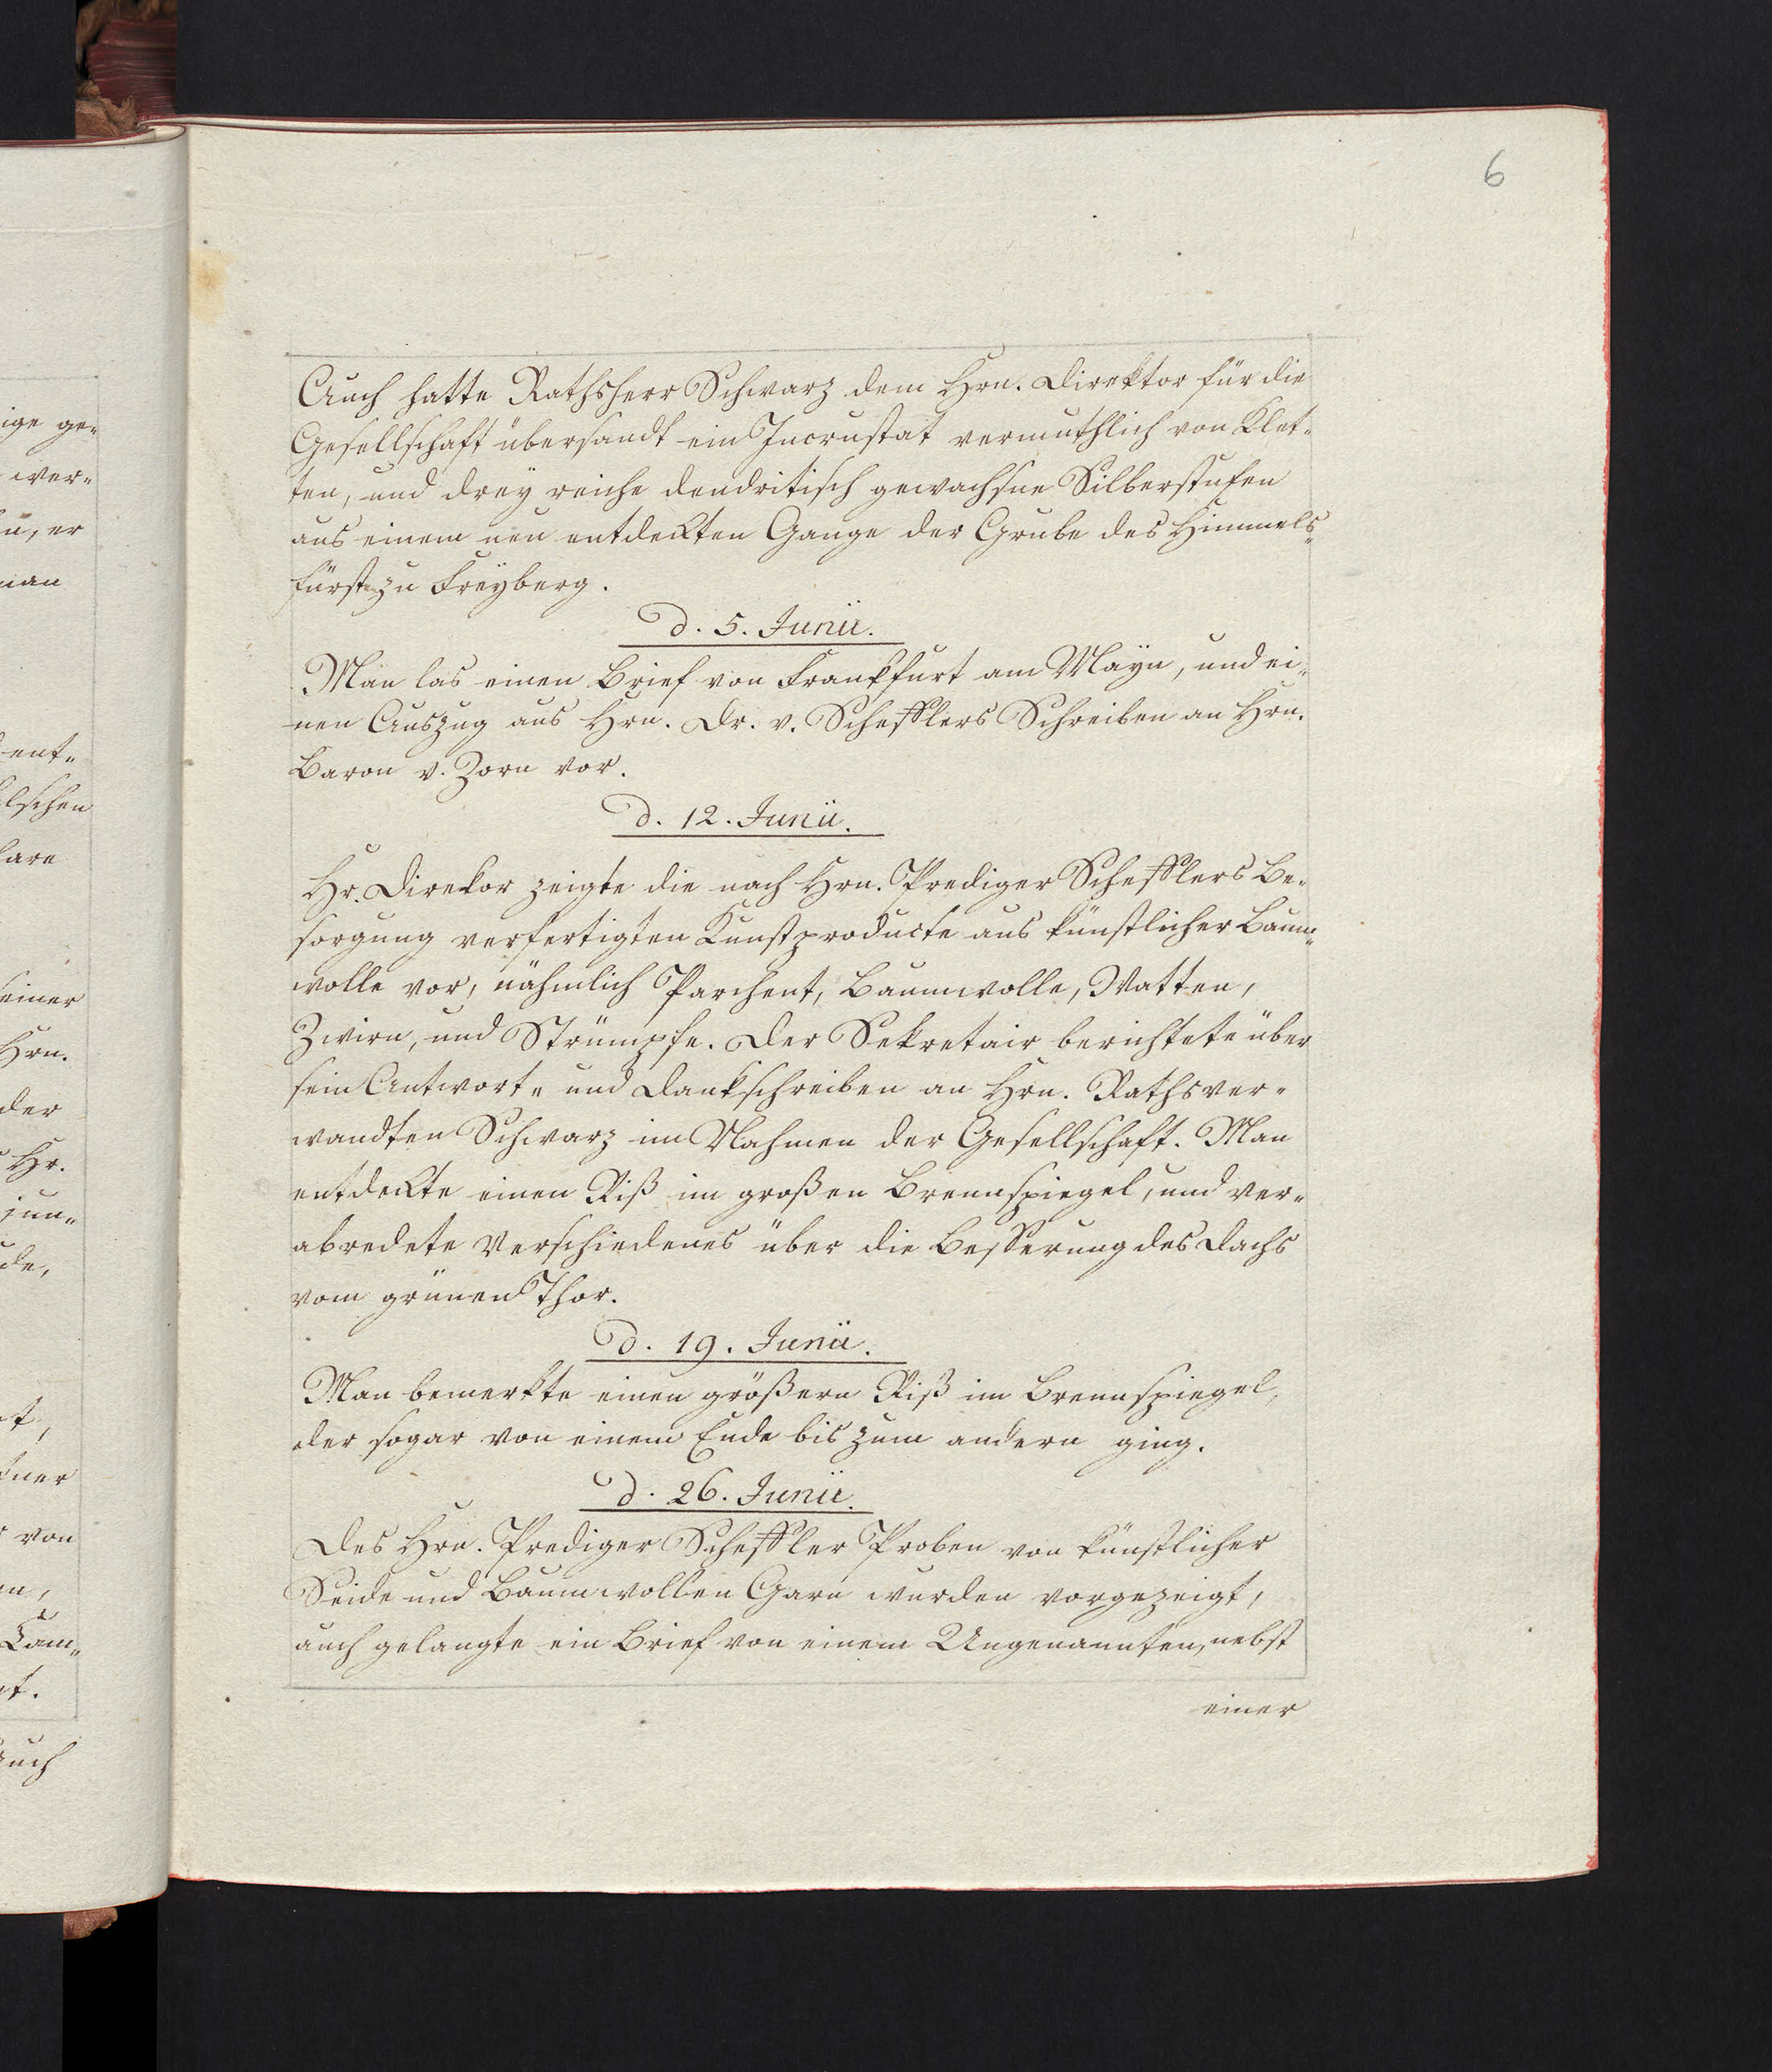 6
Auch hatte Rathsherr Schwarz dem Hrn. Direktor für die
Gesellschaft übersandt ein Incrustat vermuthlich von Klet-
ten, und drey reiche dendritisch gewachsne Silberstufen
aus einem neu entdekten Gange der Grube des Himmels-
fürst zu Freyberg.
d. 5. Junii.
Man las einen Brief von Frankfurt am Mayn, und ei-
nen Auszug aus Hrn. Dr. v. Schefflers Schreiben an Hrn.
Baron v. Zorn vor.
d. 12. Junii.
Hr. Direkor zeigte die nach Hrn. Prediger Schefflers Be-
sorgung verfertigten Kunstproducte aus künstlicher Baum-
wolle vor, nähmlich Parchent, Baumwolle, Watten,
Zwirn, und Strümpfe. Der Sekretair berichtete über
sein Antwort- und Dankschreiben an Hrn. Rathsver-
wandten Schwarz im Nahmen der Gesellschaft. Man
entdekte einen Riß im großen Brennspiegel, und ver-
abredete Verschiedenes über die Besserung des Dachs
vom grünen Thor.
d. 19. Junii.
Man bemerkte einen größern Riß im Brennspiegel,
der sogar von einem Ende bis zum andern ging.
d. 26. Junii.
Des Hrn. Prediger Scheffler Proben von künstlicher
Seide und Baumwollen Garn wurden vorgezeigt,
auch gelangte ein Brief von einem Ungenannten, nebst
einer
ige ge-
wer-
n, er
man
ent-
lschen
lare
seiner
Hrn.
der
Hr.
jun-
de,
t,
tner
von
en,
Cam-
nt.
Auch